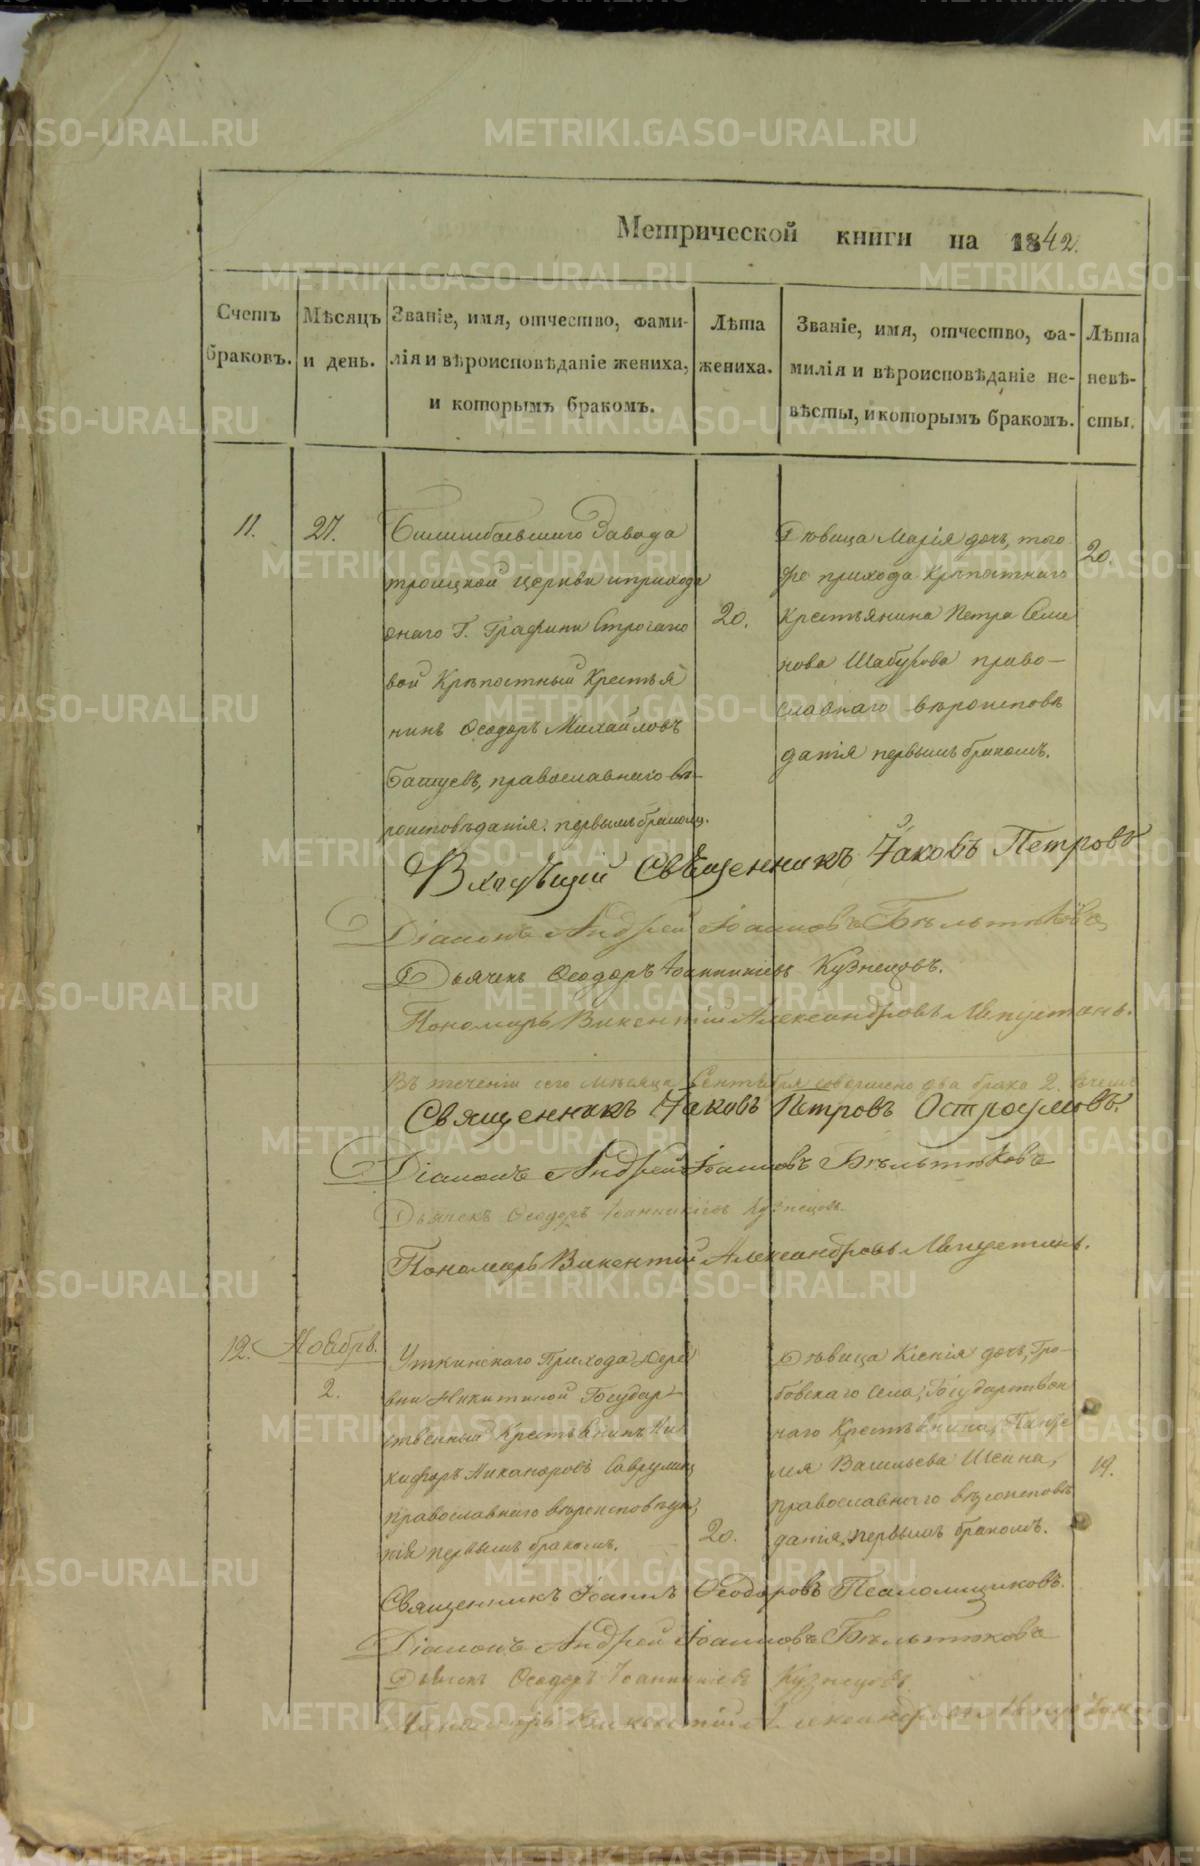 Метрической книги на 1842.
Счетъ браковъ.
Мѣсяцъ и день.
Званіе, имя, отчество, фами-
лія и вѣроисповѣданіе жениха,
и которымъ бракомъ.
Лѣта жениха.
Званіе, имя, отчество, фа-
милія и вѣроисповѣданіе не-
вѣсты, и которымъ бракомъ.
Лѣта невѣ-
сты.
11.
27.
Билимбаевскаго Завода
троицкой церкви и прихода
онаго Г. Графини Строгано
вой Крѣпостный Крестья
нинъ Ѳеодоръ Михайловъ
православнаго вѣ-
роисповѣданія. первымъ бракомъ.
20.
Дѣвица Марія дочь, того
же прихода Крѣпостнаго
Крестьянина Петра Семе
нова Шабурова право-
славнаго вѣроисповѣ
данія первымъ бракомъ.
20.
Священникъ Іаковъ Петровъ
Діаконъ Андрей Іоанновъ Бѣльтюковъ
Дьячекъ Ѳеодоръ Іоанникіевъ Кузнецовъ.
Пономарь Викентій Александровъ
Въ теченіи сего мѣсяца Сентября совершено два брака 2.
Священникъ Іаковъ Петровъ Остроумовъ.
Діаконъ Андрей Іоанновъ Бѣльтюковъ
Дьячекъ Ѳеодоръ Іоанникіевъ Кузнецовъ.
Пономарь Викентій Александровъ
12.
Ноябрь.
2.
Уткинскаго Прихода Дере
вни Никитиной Государ
ственный Крестьянинъ Ни
кифоръ Никаноровъ
православнаго вѣроисповѣда
нія первымъ бракомъ.
20.
Дѣвица Ксенія дочь, Гро-
бовскаго села, Государствен
наго Крестьянина, Панте
лея Васильева Шеина,
православнаго вѣроисповѣ
данія, первымъ бракомъ.
19.
Священникъ Іоаннъ Ѳеодоровъ Псаломщиковъ.
Діаконъ Андрей Іоанновъ Бѣльтюковъ
Дьячекъ Ѳеодоръ Іоанникіевъ Кузнецовъ.
Пономарь Викентій Александровъ
METRIKI.GASO-URAL.RU